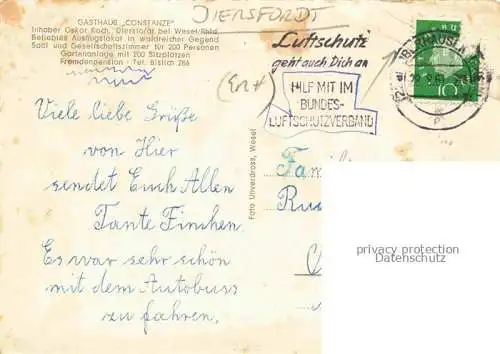 DIERSFORDT
GASTHAUS „CONSTANZE"
Inhaber Oskar Koch, Diersfordt bei Wesel/Rhld.
Beliebtes Ausflugslokal in waldreicher Gegend
Saal und Gesellschaftszimmer für 200 Personen
Gartenanlage mit 200 Sitzplätzen
Fremdenpension - Tel. Bislich 286
Luftschutz
geht auch Dich an
HILF MIT IM
BUNDES-
LUFTSCHUTZVERBAND
OBERHAUSEN
10
Viele liebe Grüße
von Hier
sendet Euch Allen
Tante Finchen
Es war sehr schön
mit dem Autobuss
zu fahren.
Foto Unverdross, Wesel
Famili
Ru
privacy protection
Datenschutz